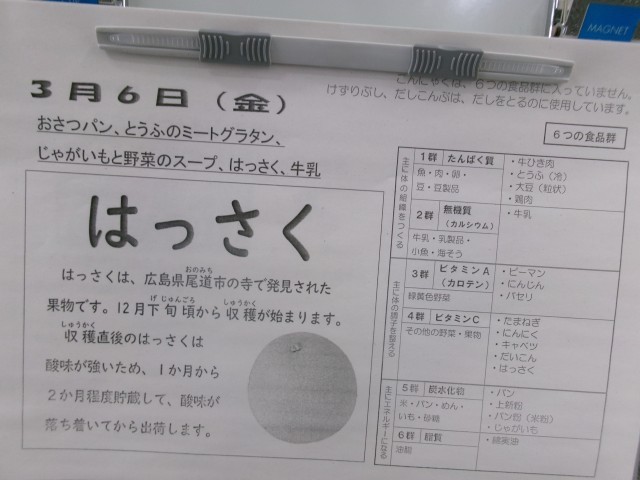 MAGNET
こんにゃくは、6つの食品群に入っていません。
けずりぶし、だしこんぶは、だしをとるのに使用しています。
3月6日（金）
おさつパン、とうふのミートグラタン、
じゃがいもと野菜のスープ、はっさく、牛乳
はっさく
はっさくは、広島県尾道市の寺で発見された
おのみち
果物です。12月下旬頃から収穫が始まります。
げじゅんごろ
しゅうかく
収穫直後のはっさくは
しゅうかく
酸味が強いため、1か月から
2か月程度貯蔵して、酸味が
落ち着いてから出荷します。
6つの食品群
主に体の組織をつくる
1群 たんぱく質
魚・肉・卵・
豆・豆製品
・牛ひき肉
・とうふ（冷）
・大豆（粒状）
・鶏肉
2群 無機質
（カルシウム）
牛乳・乳製品・
小魚・海そう
・牛乳
主に体の調子を整える
3群 ビタミンA
（カロテン）
緑黄色野菜
・ピーマン
・にんじん
・パセリ
4群 ビタミンC
その他の野菜・果物
・たまねぎ
・にんにく
・キャベツ
・だいこん
・はっさく
主にエネルギーになる
5群 炭水化物
米・パン・めん・
いも・砂糖
・パン
・上新粉
・パン粉（米粉）
・じゃがいも
6群 脂質
油脂